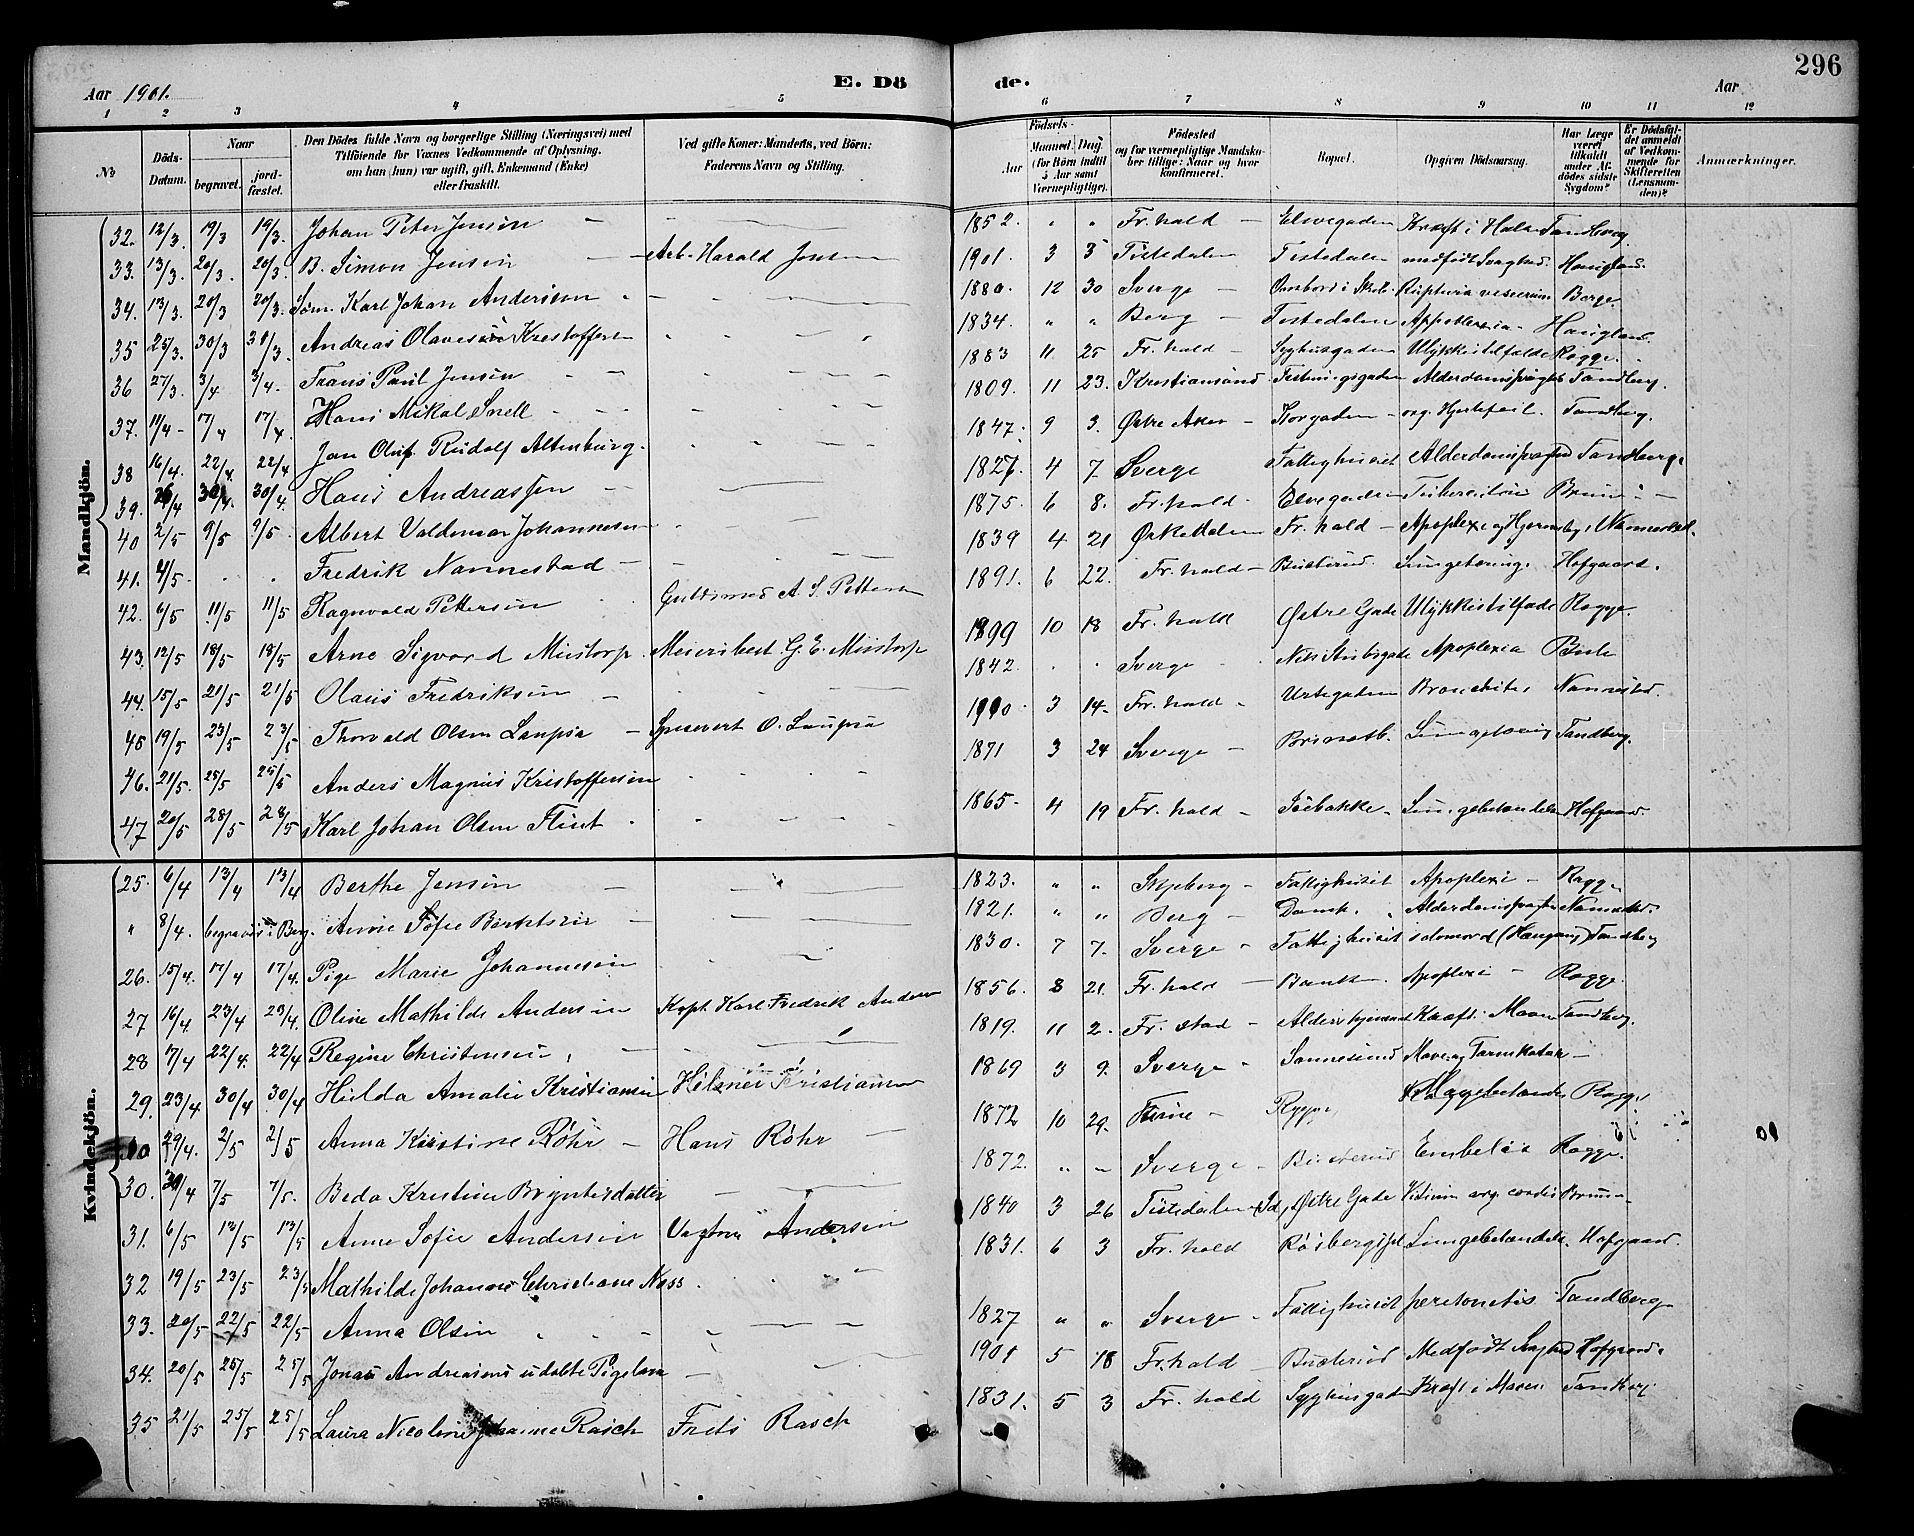 296
Aar 1901.
E. Dö de.
Aar
1 2 3 4 5 6 7 8 9 10 11 12
No
Döds-Datum.
Naar
begravet.
jord-fæstet.
Den Dödes fulde Navn og borgerlige Stilling (Næringsvei) med
Tilföiende for Voxnes Vedkommende af Oplysning,
om han (hun) var ugift, gift, Enkemand (Enke)
eller fraskilt.
Ved gifte Koner: Mandens, ved Börn:
Faderens Navn og Stilling.
Födsels-
Aar
Maaned. Dag.
(for Börn indtil
5 Aar samt
Værnepligtige).
Födested
og for værnepligtige Mandska-
ber tillige: Naar og hvor
konfirmeret.
Bopæl.
Opgiven Dödsaarsag.
Har Læge
været
tilkaldt
under Af-
dödes sidste
Sygdom?
Er Dödsfal-
det anmeldt
af Vedkom-
mende for
Skifteretten
(Lensman-
den)?
Anmærkninger.
Mandkjön.
32. 12/3. 19/3 19/3. Johan Peter Jensen
33. 13/3. 20/3. 20/3. B. Simon Jensen Arb. Harald Jensen
34. 13/3. 20/3 20/3. Søm. Karl Johan Andersen
35 25/3. 30/3 30/3. Andreas Olavesen Kristoffersen
36 27/3. 3/4 3/4. Frans Paul Jensen
37. 11/4 17/4 17/4. Hans Mikal Snell
38 16/4. 22/4. 22/4 Jan Oluf Rudolf Altenburg.
39. 26/4 30/4. 30/4. Hans Andreassen
40 2/5 9/5 9/5. Albert Valdemar Johannesen
41. 4/5. Fredrik Nannestad
42. 6/5 11/5 11/5 Ragnvald Pettersen Guldsmed A. S. Pettersen
43. 12/5 18/5 18/5 Arne Sigvard Miistorp Meieribest. G. E. Miistorp
44. 15/5 21/5 21/5 Olaus Fredriksen
45 19/5 23/5 23/5 Thorvald Olsen Laupsa Spisevert O. Laupsa
46. 21/5. 25/5 25/5 Anders Magnus Kristoffersen
47 20/5 28/5 28/5 Karl Johan Olsen Flint
1852. " " Fr.hald Elvegaden Kræft i Halsen Tandberg.
1901. 3 5 Tistedalen Tistedalen medfødt Svaghed. Haugland.
1880. 12 30 Sverge Ombord i Skib Ruptura viscerum Berge.
1834. " " Berg Tistedalen Appoplexia Haugland.
1883 11. 25 Fr. hald Syghusgaden Ulykkestilfælde Rogge.
1809. 11 23. Kristiansund Fæstningsgaden Alderdomssvaghed Tandberg.
1847. 9 3. Østre Aker Storgaden org. Hjertefeil. Tandberg.
1827. 4 7. Sverge Fattighuset Alderdomssvaghed Tandberg
1875. 6 8. Fr. hald Elvegaden Tuberculose Bruun
1839 4 21 Fr. hald Apoplexi Nannestad.
1891. 6 22. Fr. hald Busterud. Hofgaard.
1899 10 18 Fr. hald Østre Gade Ulykkestilfælde Rogge.
1842. Sverge Nils Stubsgade Apoplexia
1900. 3 14. Fr. hald Urtegaden Bronchites Nannestad.
1871 3 24 Sverge Tandberg.
1865. 4 19 Fr. hald Isebakke Lungebetændelse Hofgaard.
Kvindekjön.
25. 6/4 13/4 13/4 Berthe Jensen
" 8/4. begravet i Berg. Anne Sofie Berntsen
26. 15/4. 17/4 17/4. Pige Marie Johannesen
27 16/4. 23/4 23/4. Oline Mathilde Andersen Kapt. Karl Fredrik Andersen
28 17/4 22/4. 22/4 Regine Christensen
29. 23/4 30/4 30/4 Hilda Amalie Kristiansen Kristiansen
30 29/4. 2/5 2/5 Anna Kirstine Röhr Hans Röhr
30. 30/4 7/5 7/5. Beda Kristine Bryntesdatter
31. 6/5 13/5 13/5 Anne Sofie Andersen Andersen
32 19/5 23/5 23/5 Mathilde Johanne Christiane Næss
33. 20/5 22/5 22/5 Anna Olsen
34. 20/5 25/5 25/5 Jonas Andreasens udøbte Pigebarn
35 21/5 25/5 25/5 Laura Nicoline Johanne Rasch Frits Rasch
1823. " " Skjeberg Fattighuset Apoplexi Rogge
1821. " " Berg Alderdomssvaghed Nannestad.
1830. 7 7. Sverge Fattighuset selvmord (Hængning) Tandberg
1856. 8 21. Fr. hald Apoplexi Rogge.
1819. 11 2. Fr. stad Kræft i Maven Tandberg.
1869 3 9. Sverge Sannesund Mave og Tarmkatar
1872 10 29. Rogge.
1872. Sverge Busterud Embolia Rogge.
1840 3 26 Tistedalen Østre Gade Vitium org. cordis Bruun
1831. 6 3 Fr. hald Lungebetændelse Hofgaard.
1827 " " Sverge Fattighuset peretonitis Tandberg
1901 5 18 Fr.hald Busterud Medfødt Svaghed Hofgaard.
1831. 5 3 Fr. hald Syghusgaden Kræft i Maven Tandberg